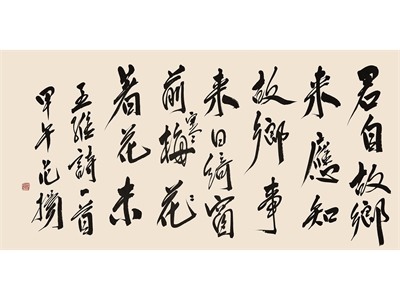 君自故鄉
來應知
故鄉事
來日綺窗
前寒梅花
着花未
王維詩一首
甲午范揚